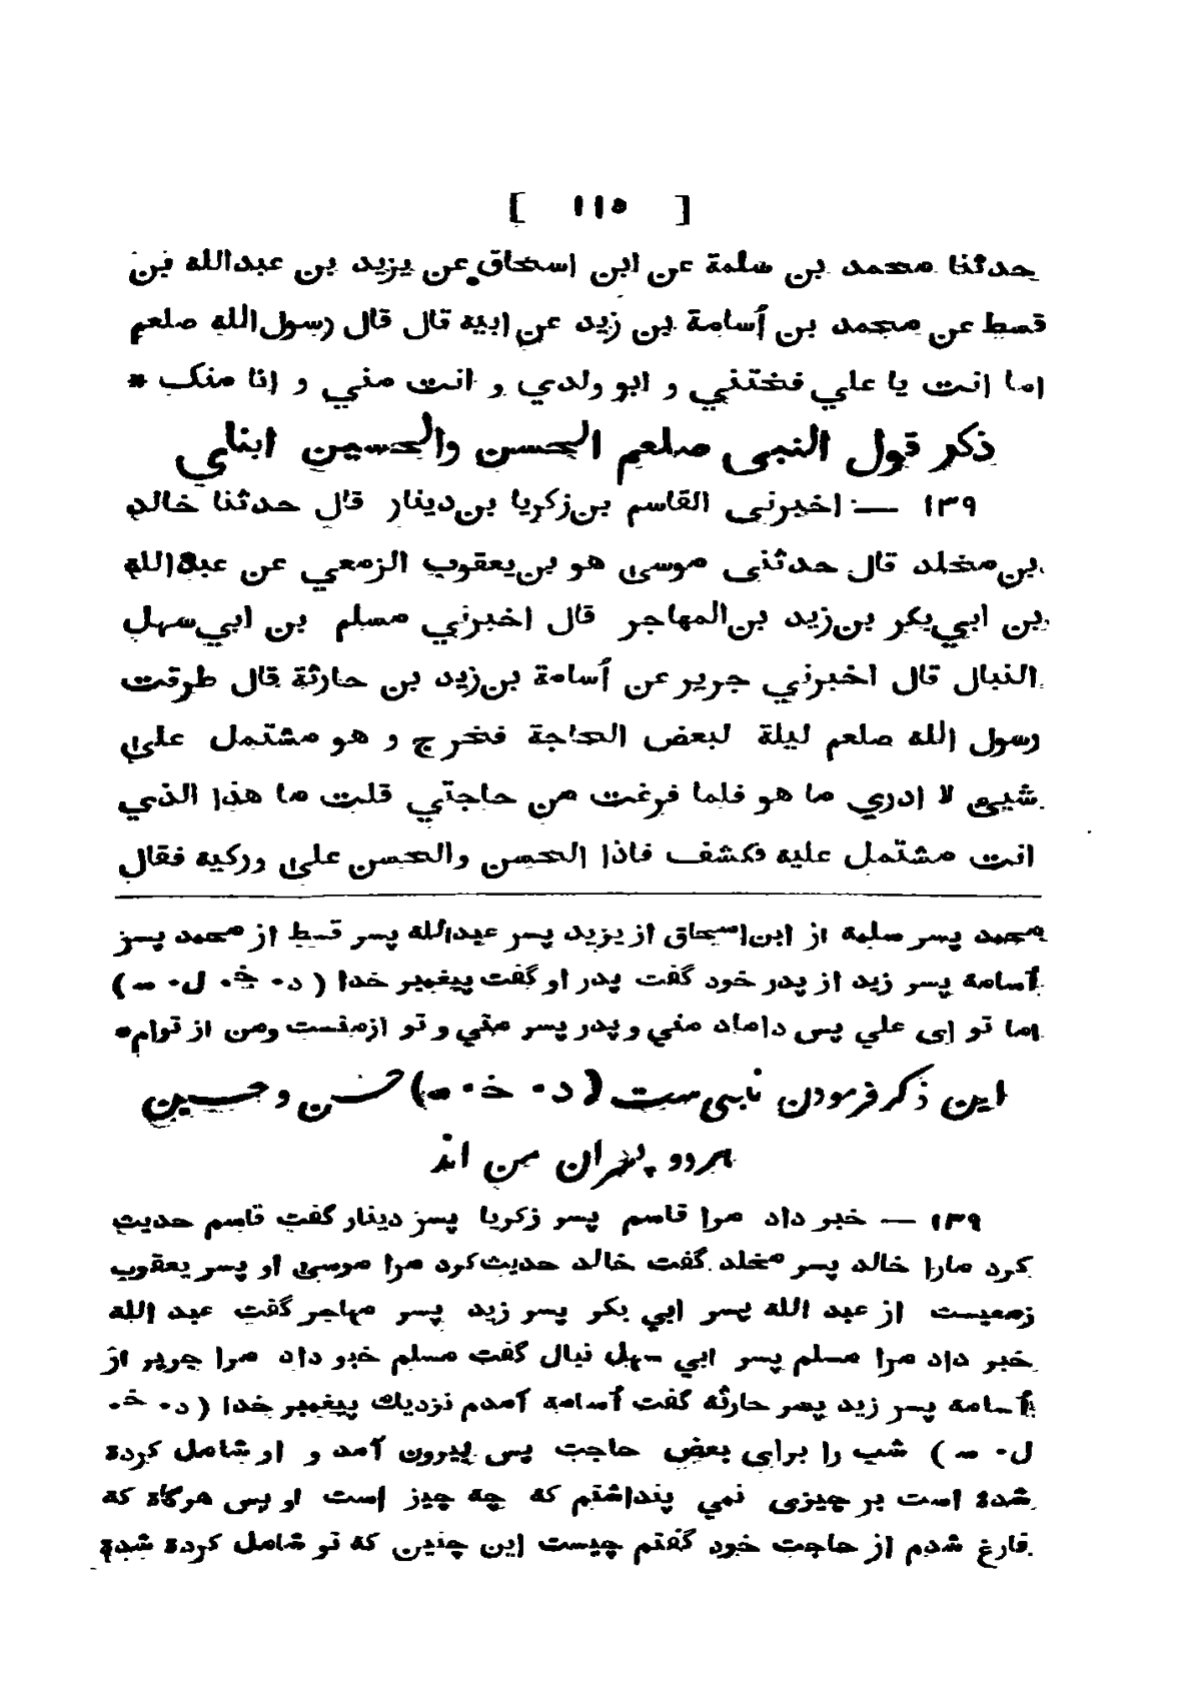 [ ١١٥ ]
حدثنا محمد بن سلمة عن ابن اسحاق عن يزيد بن عبدالله بن
قسط عن محمد بن أسامة بن زيد عن ابيه قال قال رسول الله صلعم
اما انت يا علي فختني و ابو ولدي و انت مني و انا منک *
ذکر قول النبی صلعم الحسن والحسین ابنای
١٣٩ — اخبرنی القاسم بن زکریا بن دینار قال حدثنا خالد
بن مخلد قال حدثنی موسی هو بن یعقوب الزمعي عن عبدالله
بن ابي بکر بن زید بن المهاجر قال اخبرني مسلم بن ابي سهل
النبال قال اخبرني جریر عن أسامة بن زید بن حارثة قال طرقت
رسول الله صلعم لیلة لبعض الحاجة فخرج و هو مشتمل علی
شیئ لا ادري ما هو فلما فرغت من حاجتي قلت ما هذا الذي
انت مشتمل علیه فکشف فاذا الحسن والحسن علی ورکیه فقال
محمد پسر سلمه از ابن اسحاق از یزید پسر عبدالله پسر قسط از محمد پسر
أسامه پسر زید از پدر خود گفت پدر او گفت پیغمبر خدا ( د٠ خ٠ ل٠ س )
اما تو ای علي پس داماد مني و پدر پسر مني و تو ازمنست ومن از توام*
این ذکر فرمودن نابی ست ( د٠ خ٠ س ) حسن و حسین
هر دو پسران من اند
١٣٩ — خبر داد مرا قاسم پسر زکریا پسر دینار گفت قاسم حدیث
کرد مارا خالد پسر مخلد گفت خالد حدیث کرد مرا موسی او پسر یعقوب
زمعیست از عبد الله پسر ابي بکر پسر زید پسر مهاجر گفت عبد الله
خبر داد مرا مسلم پسر ابي سهل نبال گفت مسلم خبر داد مرا جریر از
أسامه پسر زید پسر حارثه گفت أسامه آمدم نزدیك پیغمبر خدا ( د٠ خ٠
ل٠ س ) شب را برای بعض حاجت پس بیرون آمد و او شامل کرده
شده است بر چیزی نمي پنداشتم که چه چیز است او پس هرگاه که
فارغ شدم از حاجت خود گفتم چیست این چنین که تو شامل کرده شده